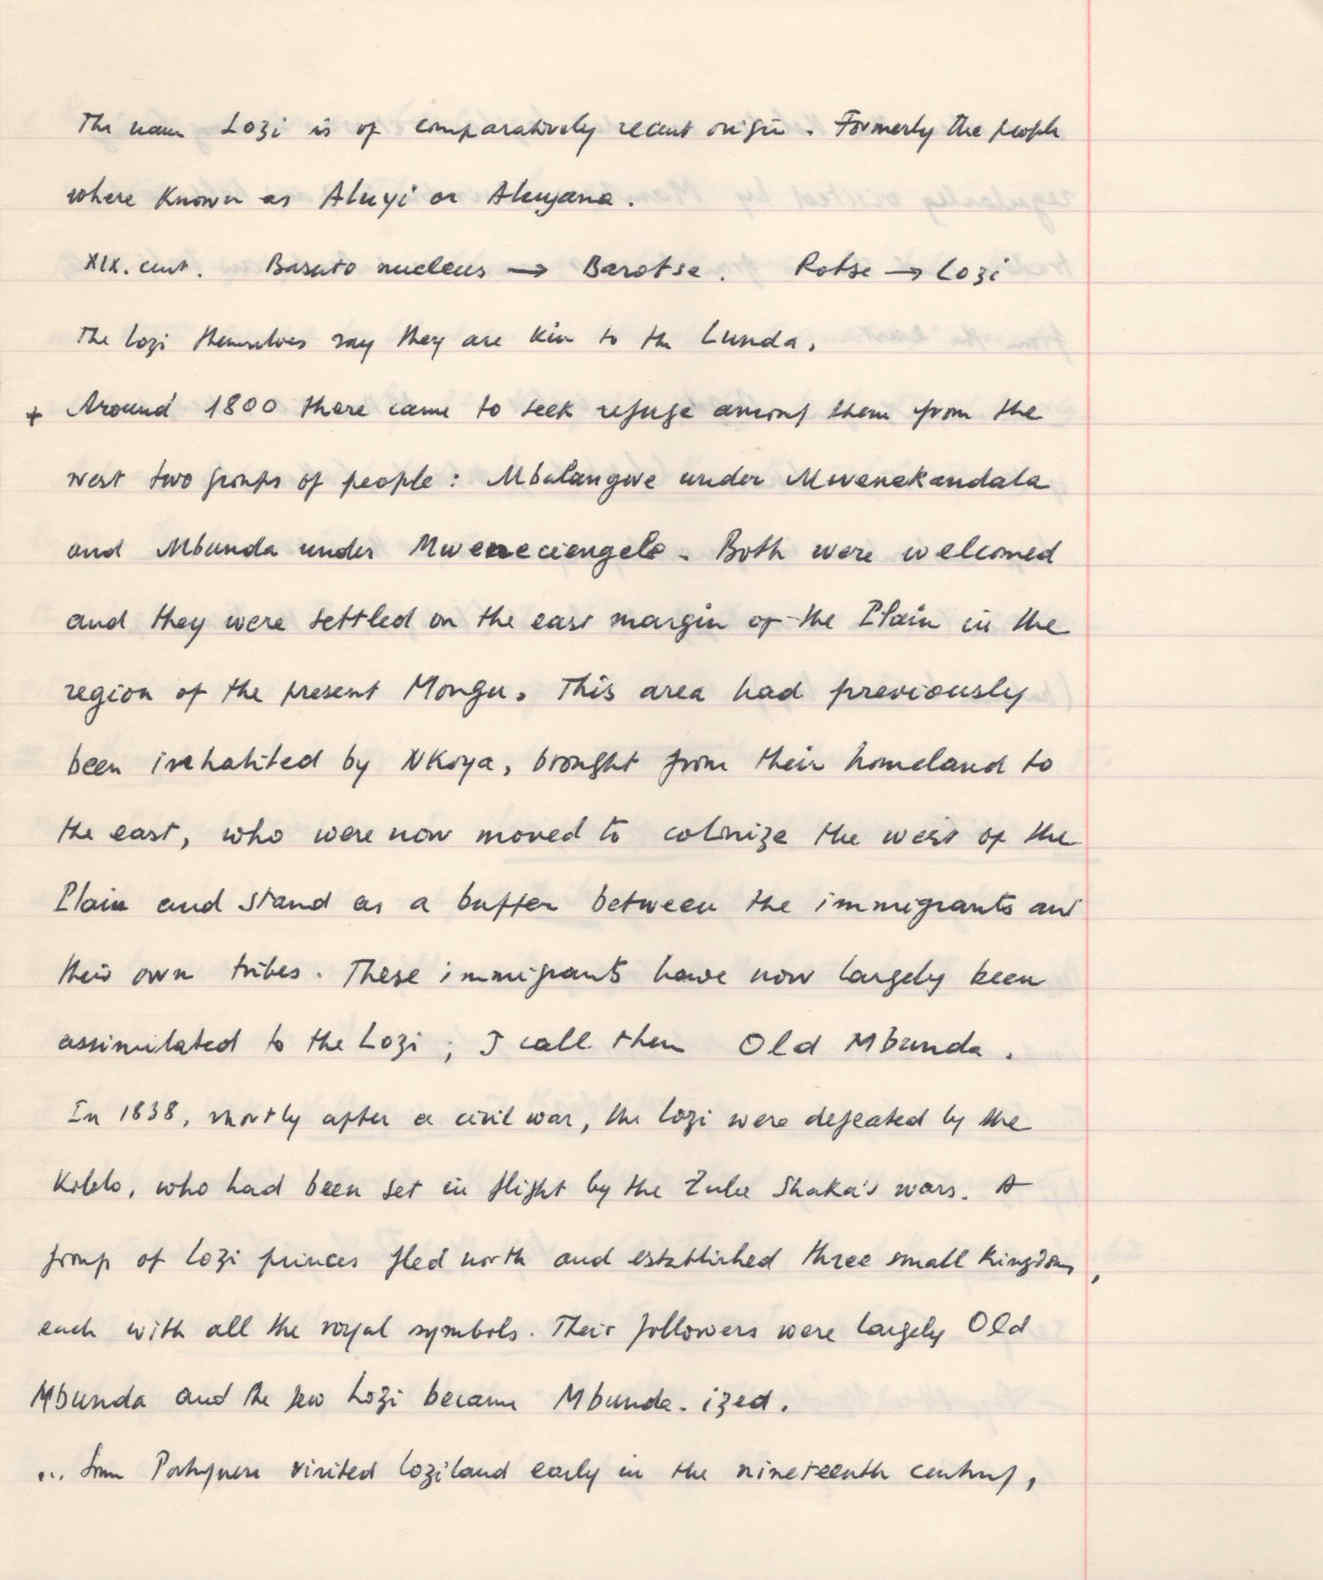 The name Lozi is of comparatively recent origin. Formerly the people
where known as Aluyi or Aluyana.
XIX. cent. Basuto nucleus → Barotse. Rotse → Lozi
The Lozi themselves say they are kin to the Lunda.
+ Around 1800 there came to seek refuge among them from the
west two groups of people: Mbalangwe under Mwenekandala
and Mbunda under Mweneciengele. Both were welcomed
and they were settled on the east margin of the Plain in the
region of the present Mongu. This area had previously
been inhabited by Nkoya, brought from their homeland to
the east, who were now moved to colonize the west of the
Plain and stand as a buffer between the immigrants and
their own tribes. These immigrants have now largely been
assimilated to the Lozi; I call them Old Mbunda.
In 1838, shortly after a civil war, the Lozi were defeated by the
Kololo, who had been set in flight by the Zulu Shaka's wars. A
group of Lozi princes fled north and established three small kingdoms,
each with all the royal symbols. Their followers were largely Old
Mbunda and the few Lozi became Mbunda-ized.
... Some Portuguese visited Loziland early in the nineteenth century,